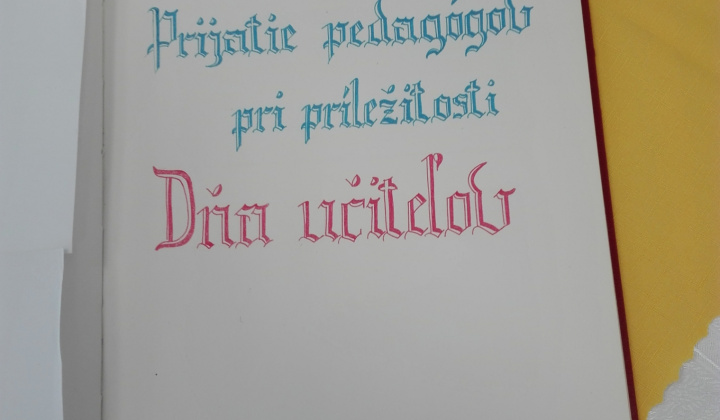 Prijatie pedagógov
pri príležitosti
Dňa učiteľov